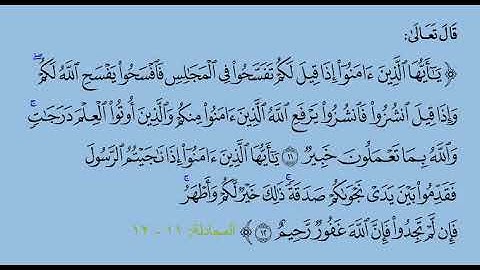 قَالَ تَعَالَىٰ:
﴿ يَٰٓأَيُّهَا ٱلَّذِينَ ءَامَنُوٓا۟ إِذَا قِيلَ لَكُمْ تَفَسَّحُوا۟ فِى ٱلْمَجَٰلِسِ فَٱفْسَحُوا۟ يَفْسَحِ ٱللَّهُ لَكُمْ ۖ
وَإِذَا قِيلَ ٱنشُزُوا۟ فَٱنشُزُوا۟ يَرْفَعِ ٱللَّهُ ٱلَّذِينَ ءَامَنُوا۟ مِنكُمْ وَٱلَّذِينَ أُوتُوا۟ ٱلْعِلْمَ دَرَجَٰتٍ ۚ
وَٱللَّهُ بِمَا تَعْمَلُونَ خَبِيرٌ ١١ يَٰٓأَيُّهَا ٱلَّذِينَ ءَامَنُوٓا۟ إِذَا نَٰجَيْتُمُ ٱلرَّسُولَ
فَقَدِّمُوا۟ بَيْنَ يَدَىْ نَجْوَىٰكُمْ صَدَقَةً ۚ ذَٰلِكَ خَيْرٌ لَّكُمْ وَأَطْهَرُ ۚ
فَإِن لَّمْ تَجِدُوا۟ فَإِنَّ ٱللَّهَ غَفُورٌ رَّحِيمٌ ١٢ ﴾ المجادلة: ١١ - ١٢